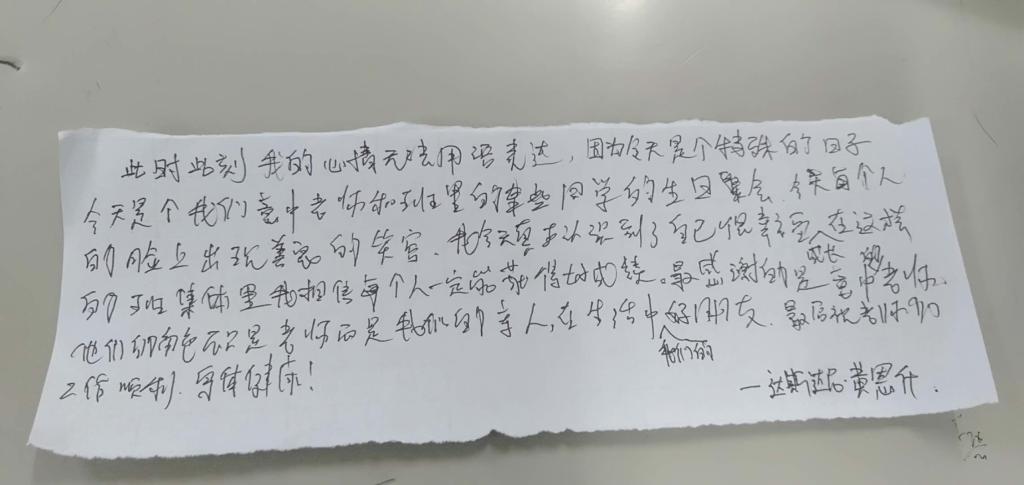 此时此刻我的心情无法用语表达,因为今天是个特殊的日子
今天是个我们高中老师和班里的某些同学的生日聚会.今天每个人
的脸上出现善意的笑容.我今天真正认识到了自己很幸运在这样
的班集体里成长我相信每个人一定能获得好成绩。最感谢的是高中老师.
他们的角色不只是老师而是我们的亲人,在生活中我们的好朋友.最后祝老师们
工作顺利.身体健康!
—达斯达尼·黄恩升.